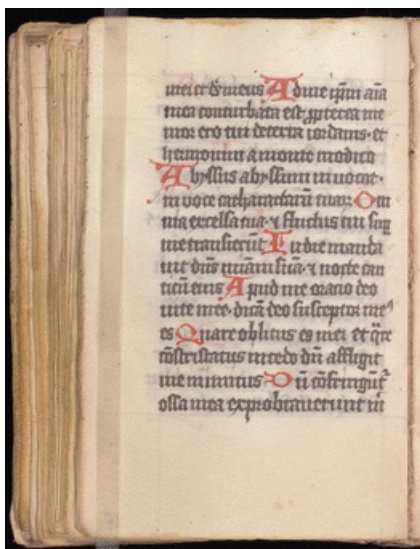 mei et de͂ meus Ad me ip̄m aīa
mea conturbata est ꝓpterea me
mor ero tui de terra iordanis · et
hermonim a monte modico
Abyssus abyssum in vocat ·
in voce catharactarū tuaꝝ Om
nia excelsa tua · ⁊ fluctus tui suꝑ
me transierūt In die manda
uit dn̄s mīam suā · ⁊ nocte can
ticū eius Apud me oracio deo
vite mee · dicā deo susceptor me⁹
es Quare oblitus es mei et q̄re
cōtristatus incedo dū affligit
me inimicus Dū cōfringūt᷑
ossa mea exprobrauerunt m̄